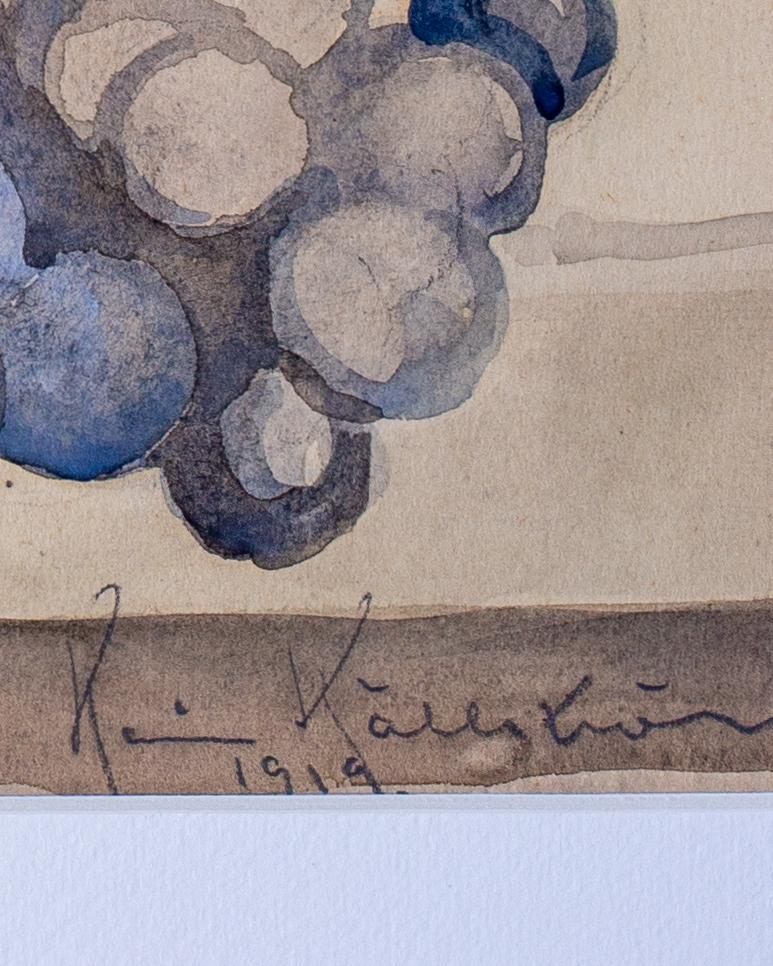 Kain Källström
1919.